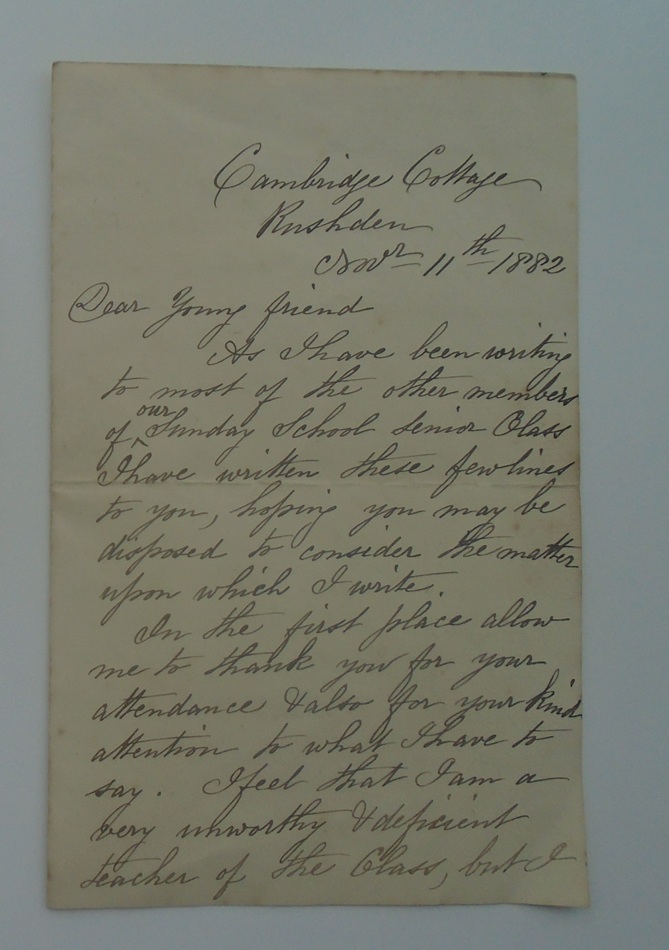 Cambridge Cottage
Rushden
Novr 11th 1882
Dear Young friend
As I have been writing
to most of the other members
of our Sunday School senior Class
I have written these few lines
to you, hoping you may be
disposed to consider the matter
upon which I write.
In the first place allow
me to thank you for your
attendance & also for your kind
attention to what I have to
say. I feel that I am a
very unworthy & deficient
teacher of the Class, but I